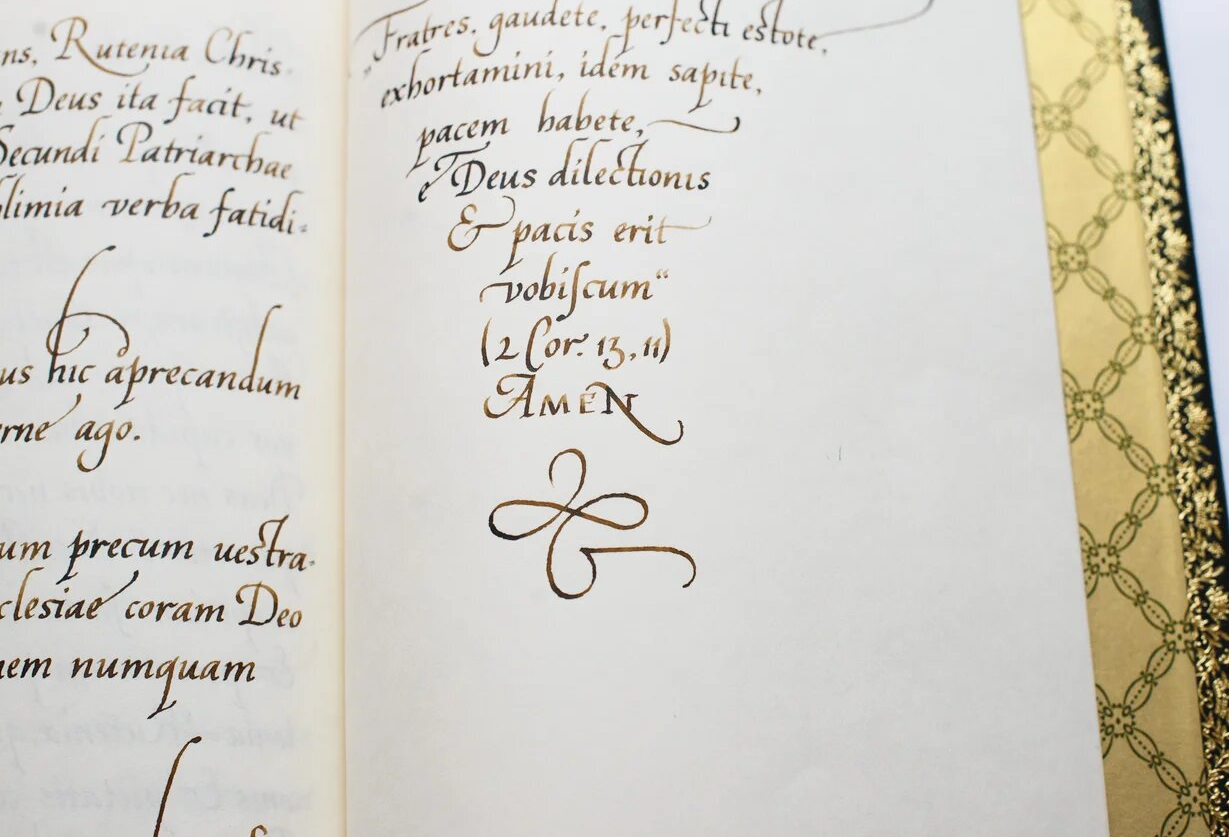 ens, Rutenia Chris-
Deus ita facit, ut
Secundi Patriarchae
verba fatidi-
hic apprecandum
ago.
precum vestra-
coram Deo
numquam
„Fratres, gaudete, perfecti estote,
exhortamini, idem sapite,
pacem habete,
& Deus dilectionis
& pacis erit
vobiscum“
(2 Cor. 13, 11)
AMEN